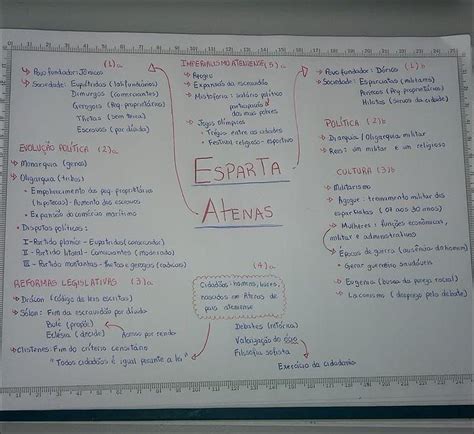 (1)a
→ Povo fundador: Jônicos
→ Sociedade: Eupátridas (latifundiários)
Demiurgos (comerciantes)
Georgois (Peq. proprietários)
Thetas (sem terra)
Escravos (por dívida)
EVOLUÇÃO POLÍTICA (2)a
→ Monarquia (genos)
→ Oligarquia (tribos)
• Empobrecimento dos peq. proprietários
(hipotecas) - Aumento dos escravos
• Expansão do comércio marítimo
→ Disputas políticas:
I - Partido planície - Eupátridas (conservador)
II - Partido litoral - Comerciantes (moderado)
III - Partido montanhas - thetas e georgois (radicais)
REFORMAS LEGISLATIVAS (3)a
→ Drácon (Código de leis escritas)
→ Sólon: Fim da escravidão por dívida
Bulé (propõe)
Eclésia (decide)
Acesso por renda
→ Clístenes: Fim do critério censitário
"Todos cidadãos é igual perante a lei"
IMPERIALISMO ATENIENSE (5)a
→ Apogeu
→ Expansão da escravidão
→ Mistoforia: salário político
participação
dos mais pobres
→ Jogos Olímpicos
• Trégua entre as cidades
• Festival religioso - esportivo
ESPARTA
ATENAS
(4)a
Cidadãos: homens, livres,
nascidos em Atenas de
pais ateniense
Debates (retórica)
Valorização do ócio
Filosofia sofista
Exercício da cidadania
(1)b
→ Povo fundador: Dórios
→ Sociedade: Esparciatas (militares)
Periecos (Peq. proprietários)
Hilotas (Servos da cidade)
POLÍTICA (2)b
→ Diarquia / Oligarquia militar
→ Reis: um militar e um religioso
CULTURA (3)b
→ Militarismo
→ Agoge: treinamento militar dos
espartíatas (07 aos 30 anos)
→ Mulheres: funções econômicas,
militar e administrativo
Épocas de guerra (ausência do homem)
• Gerar guerreiros saudáveis
→ Eugenia (busca da pureza racial)
→ Laconismo (desprezo pelo debate)